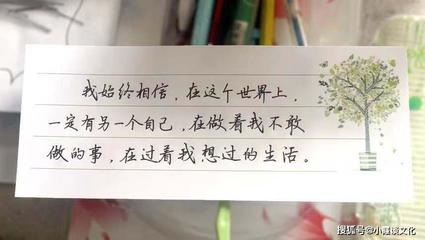 我始终相信，在这个世界上，
一定有另一个自己，在做着我不敢
做的事，在过着我想过的生活。
搜狐号@小嘴谈文化